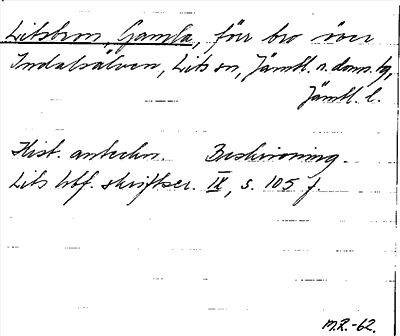 Litsbron, Gamla, förr bro över
Indalsälven, Lits sn, Jämtl. n. doms. tg,
Jämtl. l.
Hist. anteckn. Beskrivning.
Lits hbf. skriftser. IX, s. 105 f.
M.R.-62.